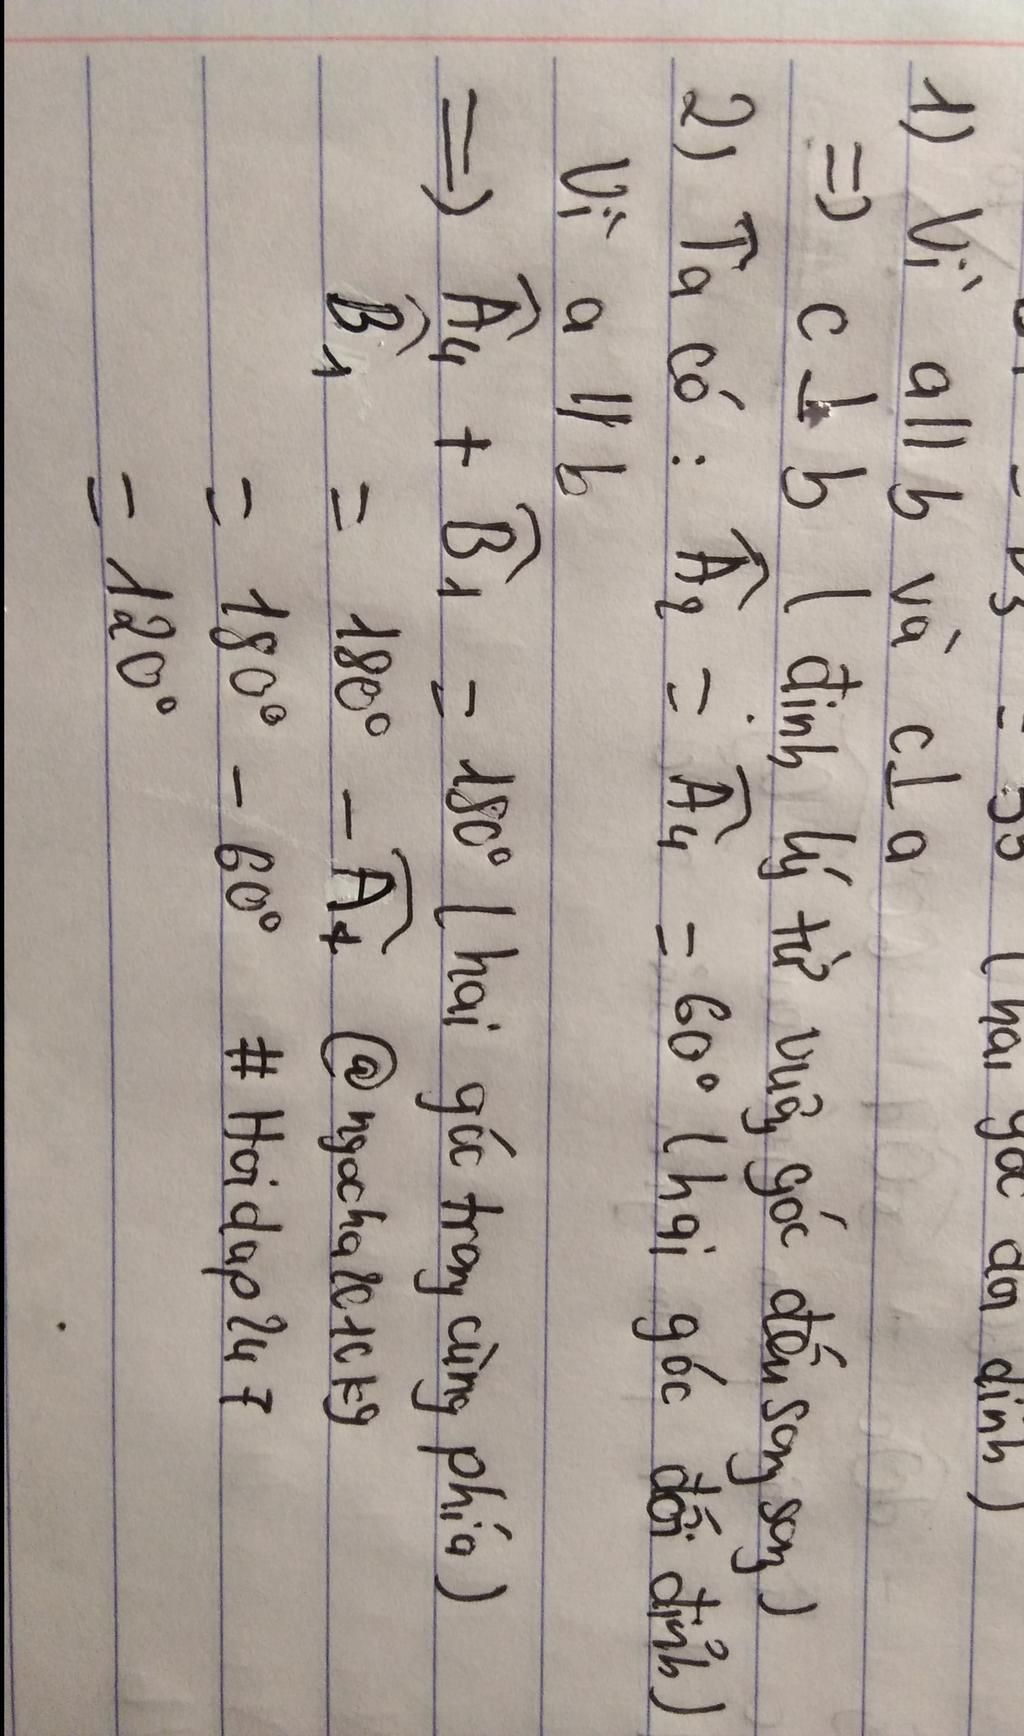 (hai góc đối đỉnh)
1) Vì a ∥ b và c ⊥ a
=> c ⊥ b ( định lý từ vuông góc đến song song )
2) Ta có : Â₂ = Â₄ = 60° ( hai góc đối đỉnh )
Vì a ∥ b
=> Â₄ + B̂₁ = 180° ( hai góc trong cùng phía )
B̂₁ = 180° - Â₄
= 180° - 60° # Hoidap247
= 120°